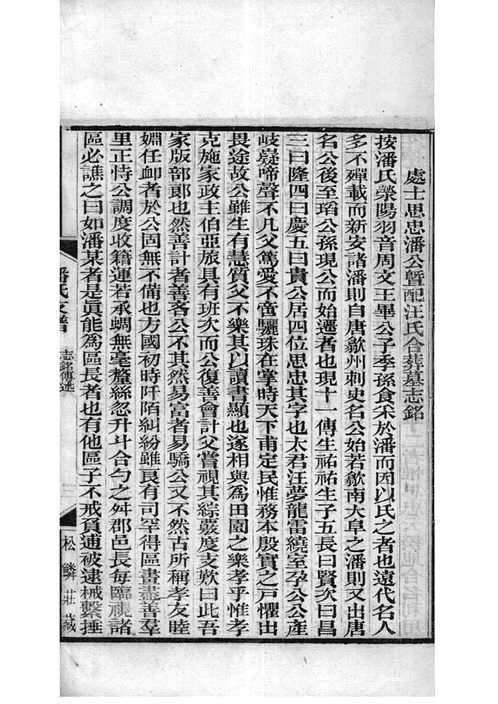 處士思忠潘公暨配汪氏合葬墓志銘
按潘氏滎陽羽音周文王畢公子季孫食采於潘而因以氏之者也遠代名人
多不殫載而新安諸潘則自唐歙州刺史名公始若歙南大阜之潘則又出唐
名公後至瑫公孫現公而始遷者也現十一傳生祐祐生子五長曰賢次曰昌
三曰隆四曰慶五曰貴公居四位思忠其字也太君汪夢龍雷繞室孕公公產
岐嶷啼聲不凡父篤愛不啻驪珠在掌時天下甫定民惟務本殷實之戶懼出
畏途故公雖生有慧質父不樂其以讀書顯也遂相與為田園之樂孝乎惟孝
克施家政主伯亞旅具有班次而公復善會計父嘗視其綜覈度支歎曰此吾
家版部郎也然善計者善吝公不其然易富者易驕公又不然古所稱孝友睦
婣任卹者於公固無不備也方國初時阡陌糾紛雖良有司罕得區畫盡善羣
里正恃公調度收籍運若承蜩無毫釐絲忽升斗合勺之舛郡邑長每臨視諸
區必譙之曰如潘某者是眞能為區長者也有他區子不戒負逋被逮械繫捶
潘氏支譜
志銘傳述
三
松鱗莊藏